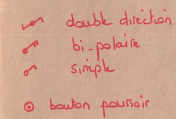 double direction
bi-polaire
simple
bouton poussoir